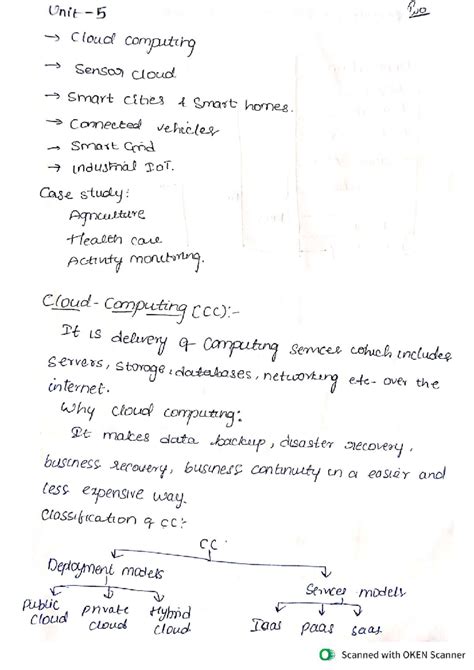 Unit-5
→ Cloud computing
→ Sensor cloud
→ Smart cities & Smart homes.
→ Connected vehicles
→ Smart Grid
→ Industrial IoT.
Case study:
Agriculture
Health care
Activity monitoring.
Cloud-Computing (CC):-
It is delivery of computing services which includes
servers, storage, databases, networking etc- over the
internet.
Why cloud computing:
It makes data backup, disaster recovery,
business recovery, business continuity in a easier and
less expensive way.
Classification of CC:-
CC
Deployment models Services models
Public cloud private cloud Hybrid cloud Iaas paas saas
Scanned with OKEN Scanner